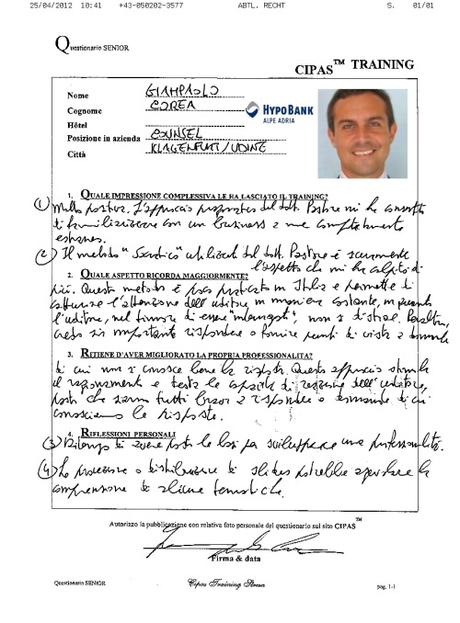 25/04/2012 10:41 +43-050202-3577 ABTL. RECHT S. 01/01
Questionario SENIOR
CIPAS™ TRAINING
Nome GIAMPAOLO
Cognome COREA
HYPO BANK
ALPE ADRIA
Hôtel
Posizione in azienda COUNSEL
Città KLAGENFURT/UDINE
1. QUALE IMPRESSIONE COMPLESSIVA LE HA LASCIATO IL TRAINING?
(1) Molto positiva. L'approccio propositivo del dott. Pastore mi ha consentito
di familiarizzare con un business a me completamente
estraneo.
(2) Il metodo "Socratico" utilizzato dal dott. Pastore è sicuramente
l'aspetto che mi ha colpito di
2. QUALE ASPETTO RICORDA MAGGIORMENTE?
più. Questo metodo è poco praticato in Italia e permette di
catturare l'attenzione dell'uditore in maniera costante, in quanto
l'uditore, nel timore di essere "interrogato", non si distrae. Peraltro,
credo sia importante rispondere o fornire punti di vista a domande
3. RITIENE D'AVER MIGLIORATO LA PROPRIA PROFESSIONALITA?
di cui non si conosce bene la risposta. Questo approccio stimola
il ragionamento e testa le capacità di reazione dell'uditore,
posto che siamo tutti bravi a rispondere a domande di cui
conosciamo le risposte.
4. RIFLESSIONI PERSONALI
(3) Ritengo di avere posto le basi per sviluppare una professionalità.
(4) La proiezione o distribuzione di slides potrebbe agevolare la
comprensione di alcune tematiche.
Autorizzo la pubblicazione con relativa foto personale del questionario sul sito CIPAS™
Firma & data
Questionario SENIOR Cipas Training Stresa pag. 1-1